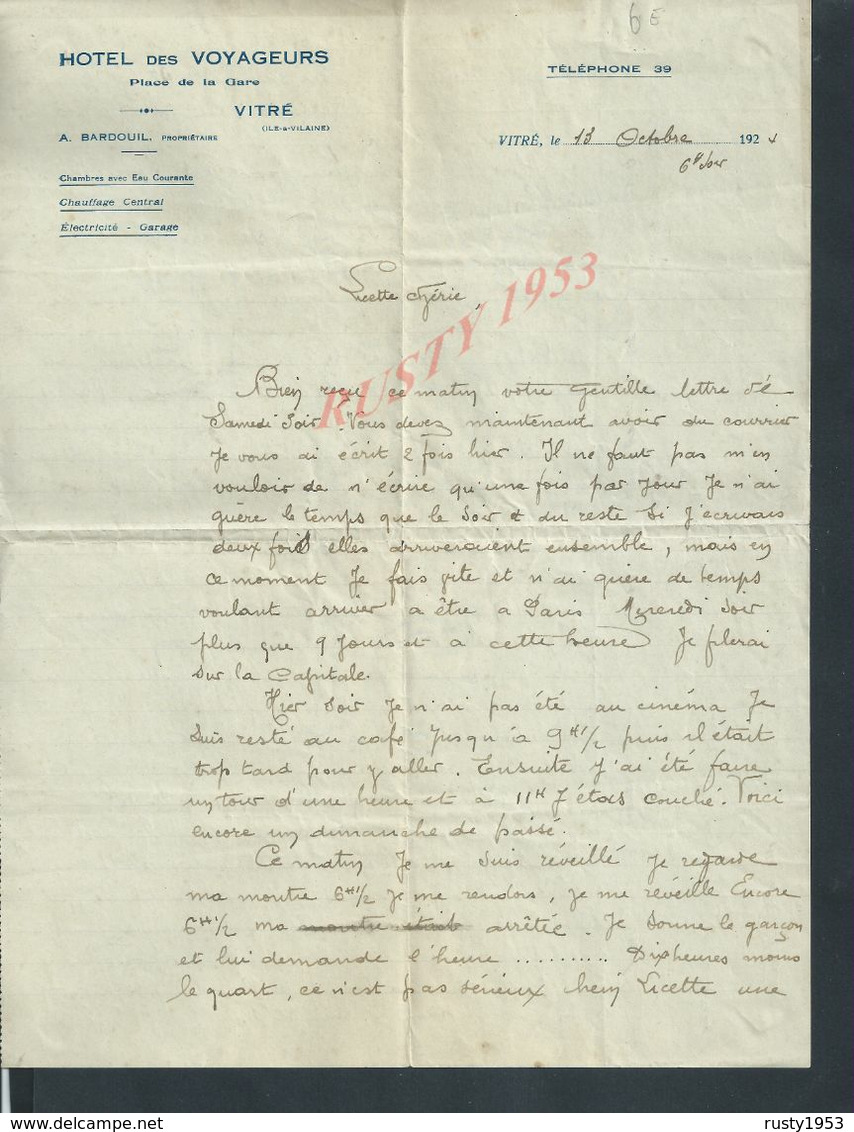 6 E
HOTEL DES VOYAGEURS
Place de la Gare
VITRÉ
(ILE-&-VILAINE)
A. BARDOUIL, PROPRIÉTAIRE
Chambres avec Eau Courante
Chauffage Central
Électricité - Garage
TÉLÉPHONE 39
VITRÉ, le 13 Octobre 192
6H Soir
Licette chérie,
RUSTY 1953
Bien reçu ce matin votre gentille lettre dé
Samedi Soir. Vous devez maintenant avoir du courrier
Je vous ai écrit 2 fois hier. Il ne faut pas m'en
vouloir de n'écrire qu'une fois par jour Je n'ai
guère le temps que le Soir & du reste Si J'écrivais
deux fois elles arriveraient ensemble, mais en
ce moment Je fais vite et n'ai guère de temps
voulant arriver a être a Paris Mercredi Soir
plus que 9 Jours et à cette heure Je filerai
sur la Capitale.
Hier Soir Je n'ai pas été au cinéma Je
suis resté au café Jusqu'à 9H1/2 puis il était
trop tard pour y aller. Ensuite J'ai été faire
un tour d'une heure et à 11H J'étais couché. Voici
encore un dimanche de passé.
Ce matin Je me suis réveillé Je regarde
ma montre 6H1/2 Je me rendors, Je me réveille Encore
6H1/2 ma montre était arrêtée. Je Sonne le garçon
et lui demande l'heure .......... Dix heures moins
le quart, ce n'est pas Sérieux hein Licette une
rusty1953